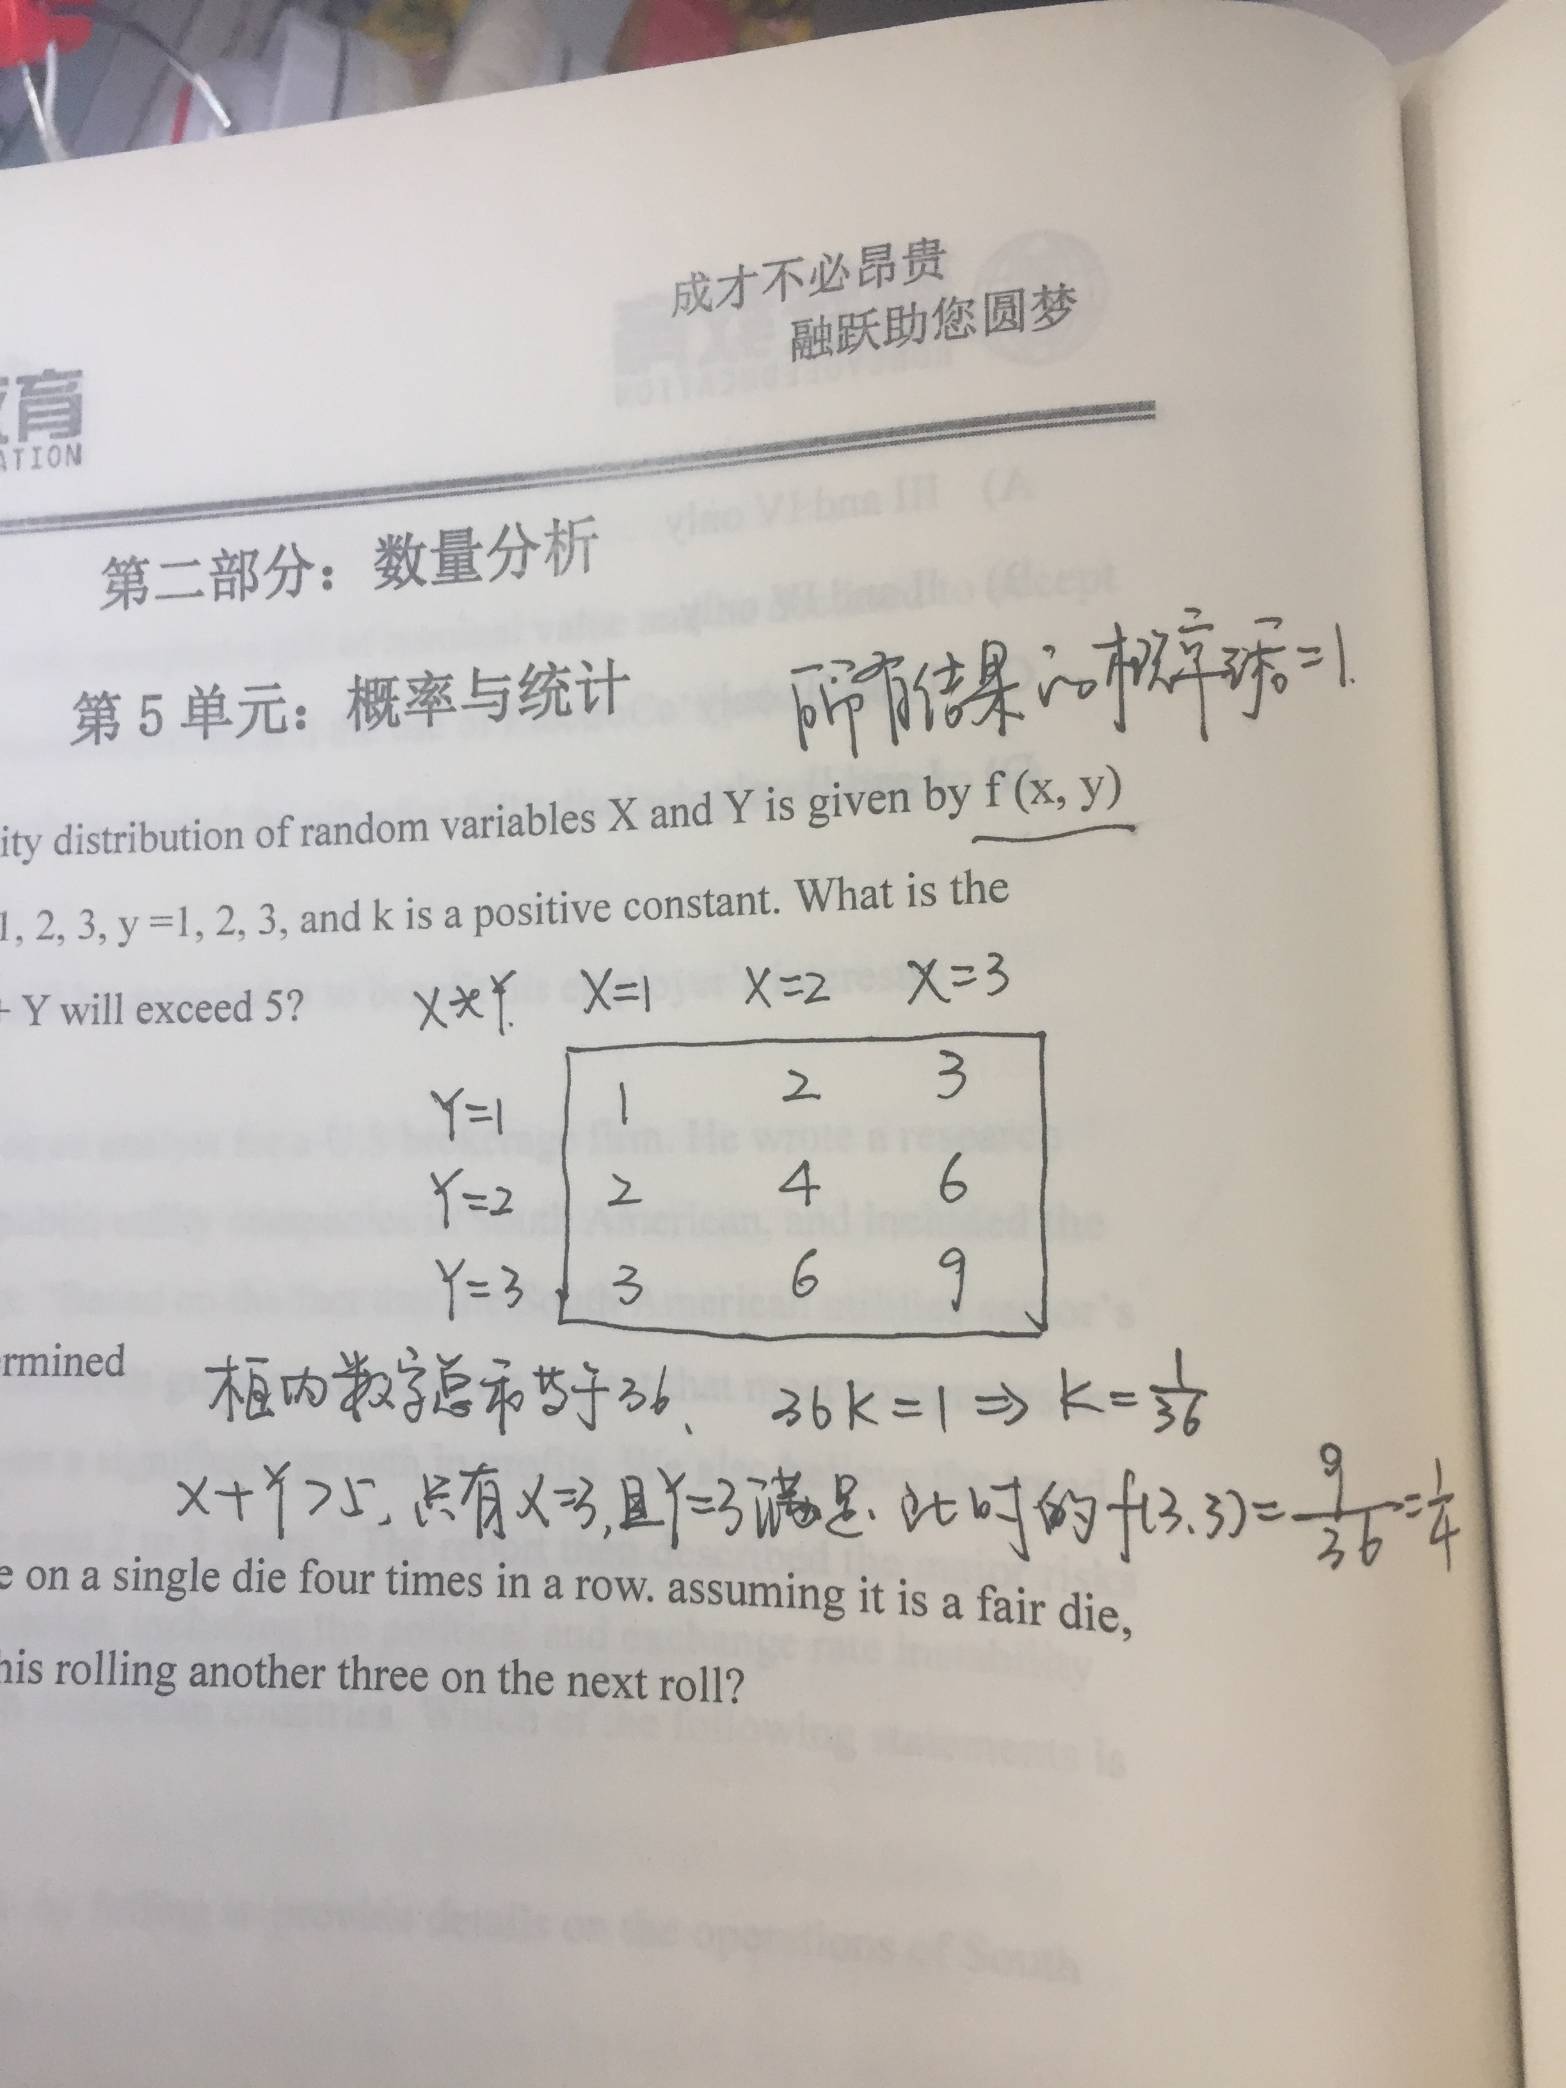 成才不必昂贵
融跃助您圆梦
育
ATION
第二部分：数量分析
第5单元：概率与统计
所有结果的概率求和=1.
ity distribution of random variables X and Y is given by f (x, y)
1, 2, 3, y =1, 2, 3, and k is a positive constant. What is the
+ Y will exceed 5?
X*Y. X=1 X=2 X=3
Y=1 1 2 3
Y=2 2 4 6
Y=3 3 6 9
rmined
框内数字总和等于36、 36k=1 ⇒ k=1/36
X+Y>5、只有X=3,且Y=3满足、此时的f(3.3)=9/36=1/4
e on a single die four times in a row. assuming it is a fair die,
his rolling another three on the next roll?